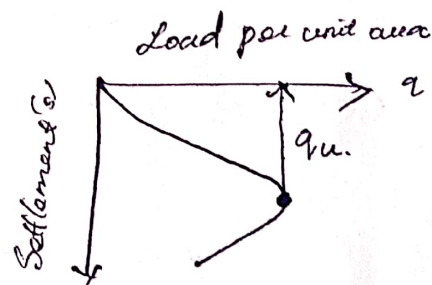 Load per unit area
q
qu.
Settlement's